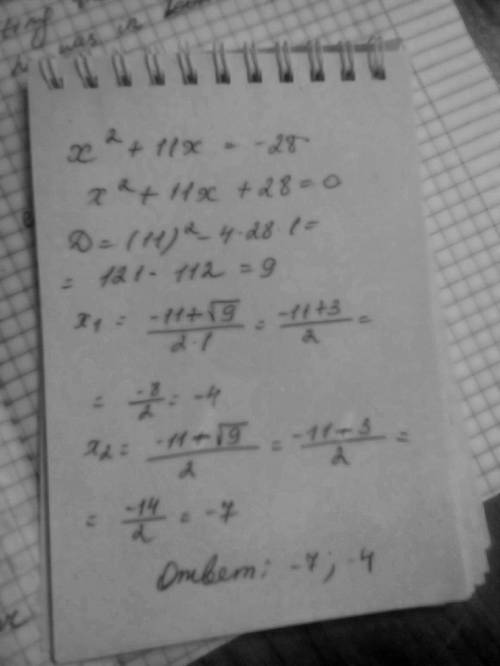 x² + 11x = -28
x² + 11x + 28 = 0
D = (11)² - 4·28·1 =
= 121 - 112 = 9
x₁ = (-11+√9)/(2·1) = (-11+3)/2 =
= -8/2 = -4
x₂ = (-11-√9)/2 = (-11-3)/2 =
= -14/2 = -7
Ответ: -7; -4